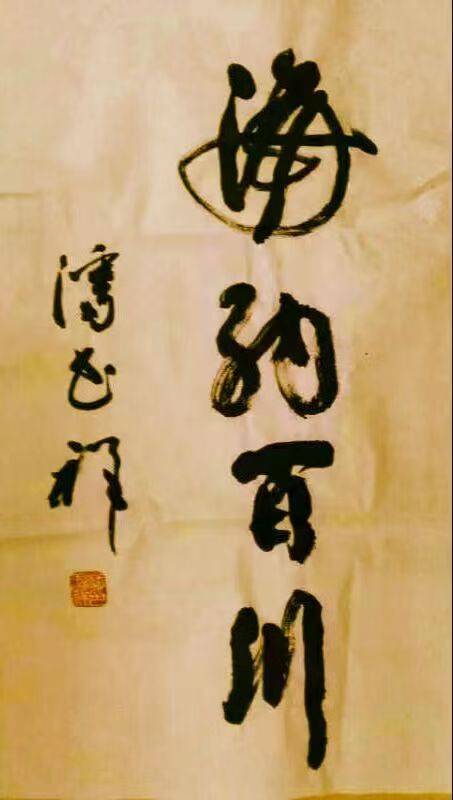 海纳百川
祥